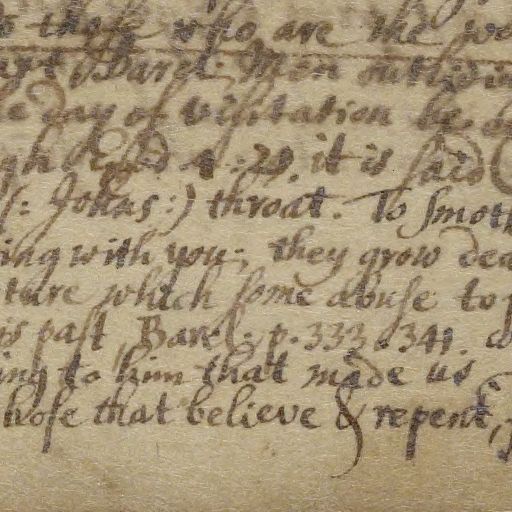 those who are the
Barel: Men outlive
day of visitation be
4:29. it is said
: Jonas:) throat. To smoth
ing with you; they grow dea
ture which some abuse to
is past, Barel: p. 333. 341.
ing to him that made us
hose that believe & repent,